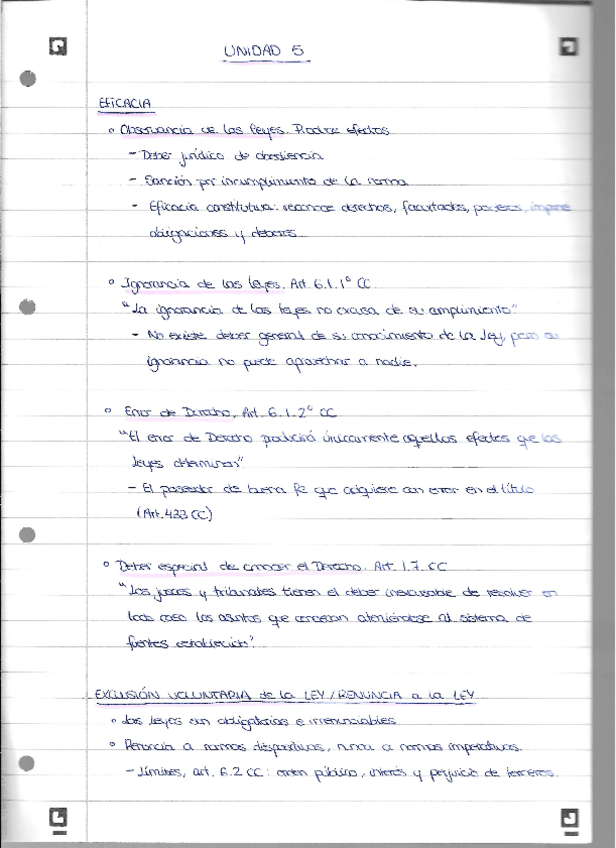 UNIDAD 5
EFICACIA
Observancia de las leyes. Produce efectos
- Deber jurídico de obediencia
- Sanción por incumplimiento de la norma
- Eficacia constitutiva: reconoce derechos, facultades, poderes, impone
obligaciones y deberes
Ignorancia de las leyes. Art. 6.1.1º CC
"La ignorancia de las leyes no excusa de su cumplimiento"
- No existe deber general de su conocimiento de la ley, pero su
ignorancia no puede aprovechar a nadie.
Error de Derecho, Art. 6.1.2º CC
"El error de Derecho producirá únicamente aquellos efectos que las
leyes determinan"
- El poseedor de buena fe que adquiere con error en el título
(Art. 433 CC)
Deber especial de conocer el Derecho. Art. 1.7 CC
"Los jueces y tribunales tienen el deber inexcusable de resolver en
todo caso los asuntos que conozcan ateniéndose al sistema de
fuentes establecido".
EXCLUSIÓN VOLUNTARIA de la LEY / RENUNCIA a la LEY
Las leyes son obligatorias e irrenunciables
Renuncia a normas dispositivas, nunca a normas imperativas.
- Límites, art. 6.2 CC: orden público, interés y perjuicio de terceros.